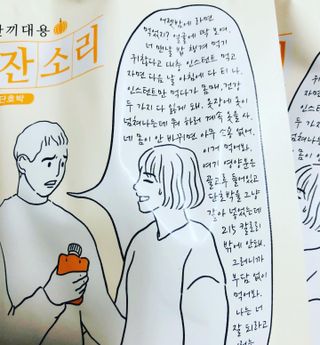 한끼대용
잔소리
단호박
어젯밤에 라면
먹었지? 얼굴에 딱 보여.
너 맨날 밥 챙겨 먹기
귀찮다고 대충 인스턴트 먹고
자면 다음 날 아침에 다 티 나.
인스턴트만 먹다가 몸매, 건강
두 가지 다 잃게 돼. 옷장에 옷이
넘쳐나는데 뭐 하러 계속 옷을 사.
네 몸이 안 바뀌면 아무 소용 없어.
이거 먹어봐.
여기 영양분은
골고루 들어있고
단호박을 그냥
갈아 넣었는데
215 칼로리
밖에 안돼.
그러니까
부담 없이
먹어봐.
나는 너
잘 되라고